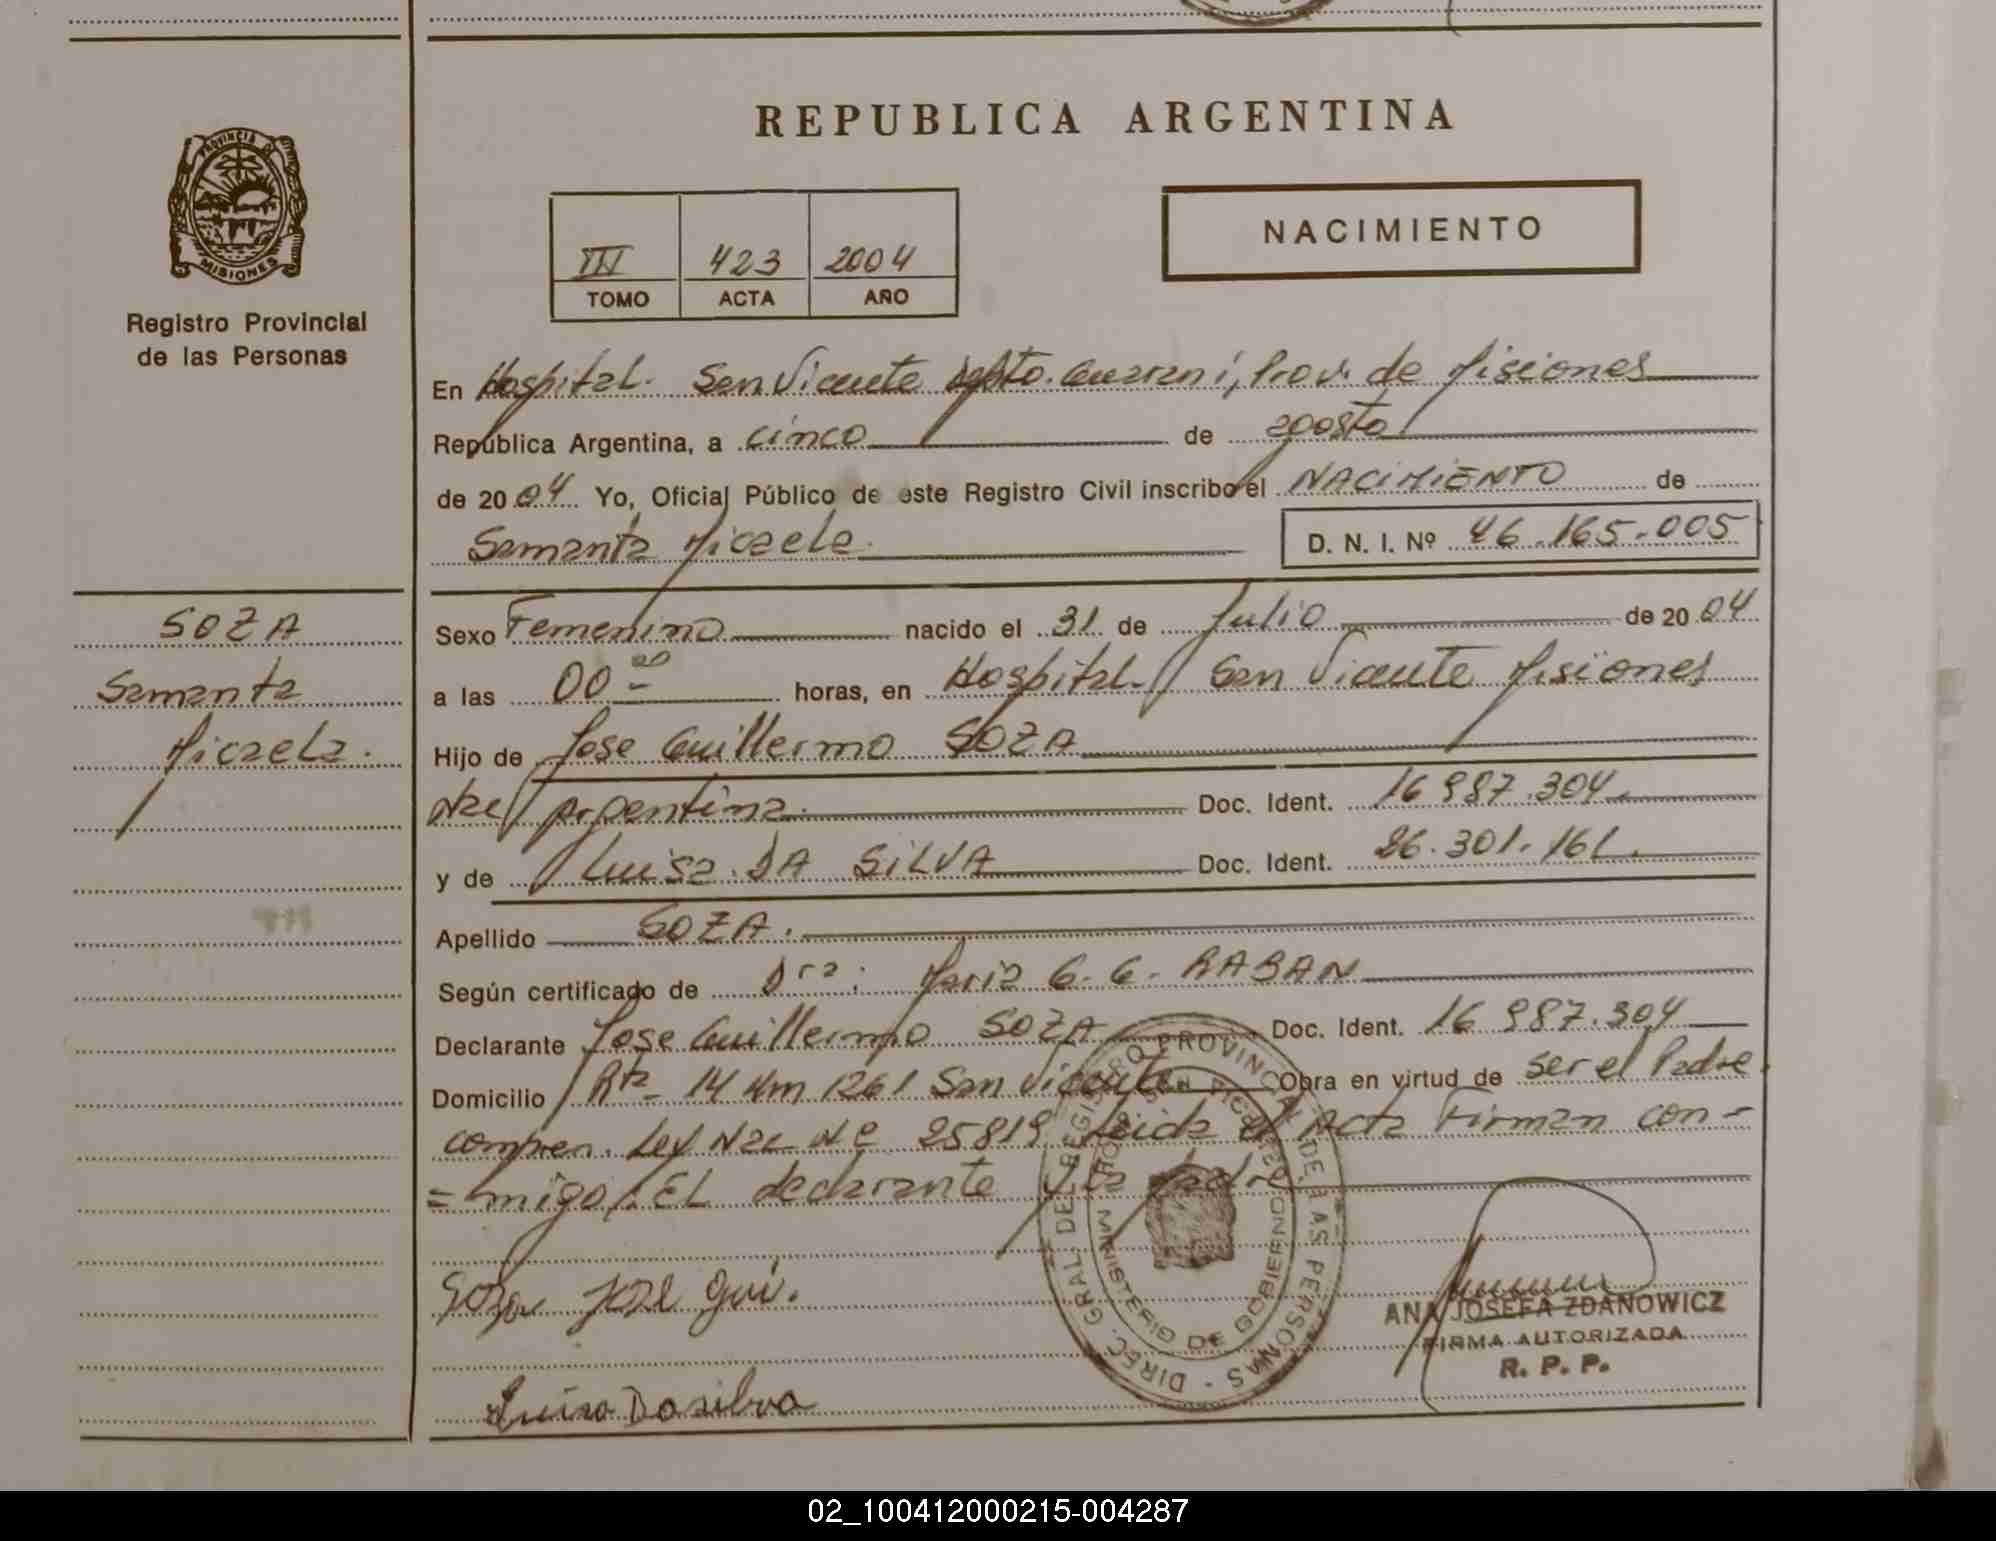 REPUBLICA ARGENTINA
PROVINCIA DE
MISIONES
Registro Provincial
de las Personas
III 423 2004
TOMO ACTA AÑO
NACIMIENTO
En Hospital. San Vicente Dpto. Guarani, Prov. de Misiones
República Argentina, a cinco de agosto
de 2004 Yo, Oficial Público de este Registro Civil inscribo el NACIMIENTO de
Samanta Micaela.
D. N. I. Nº 46.165.005
SOZA
Samanta
Micaela.
Sexo Femenino nacido el 31 de Julio de 2004
a las 00 horas, en Hospital. San Vicente Misiones
Hijo de Jose Guillermo SOZA
Nac Argentina. Doc. Ident. 16 987.304.
y de Luisa DA SILVA Doc. Ident. 26.301.161.
Apellido SOZA.
Según certificado de Dra: Maria G. G. RABAN
Declarante Jose Guillermo SOZA Doc. Ident. 16 987.304
Domicilio Rta 14 Km 1261 San Vicente Obra en virtud de ser el Padre
compren. Ley Nac Nº 25819 Leida el Acta Firman con-
=migo, EL declarante y la Madre.
Soza Jose Gui.
Luisa Da silva
DIREC. GRAL. DEL REGISTRO PROVINCIAL DE LAS PERSONAS
MINISTERIO DE GOBIERNO
ANA JOSEFA ZDANOWICZ
FIRMA AUTORIZADA
R. P. P.
02_100412000215-004287